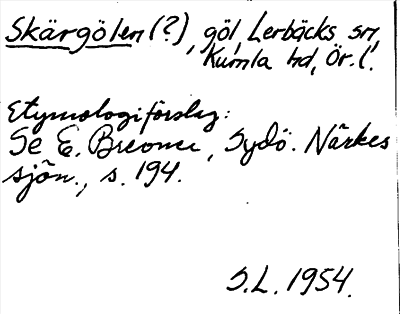 Skärgölen (?), göl, Lerbäcks sn,
Kumla hd, Ör. l.
Etymologiförslag:
Se E. Brevner, Sydö. Närkes
sjön., s. 194.
S.L. 1954.